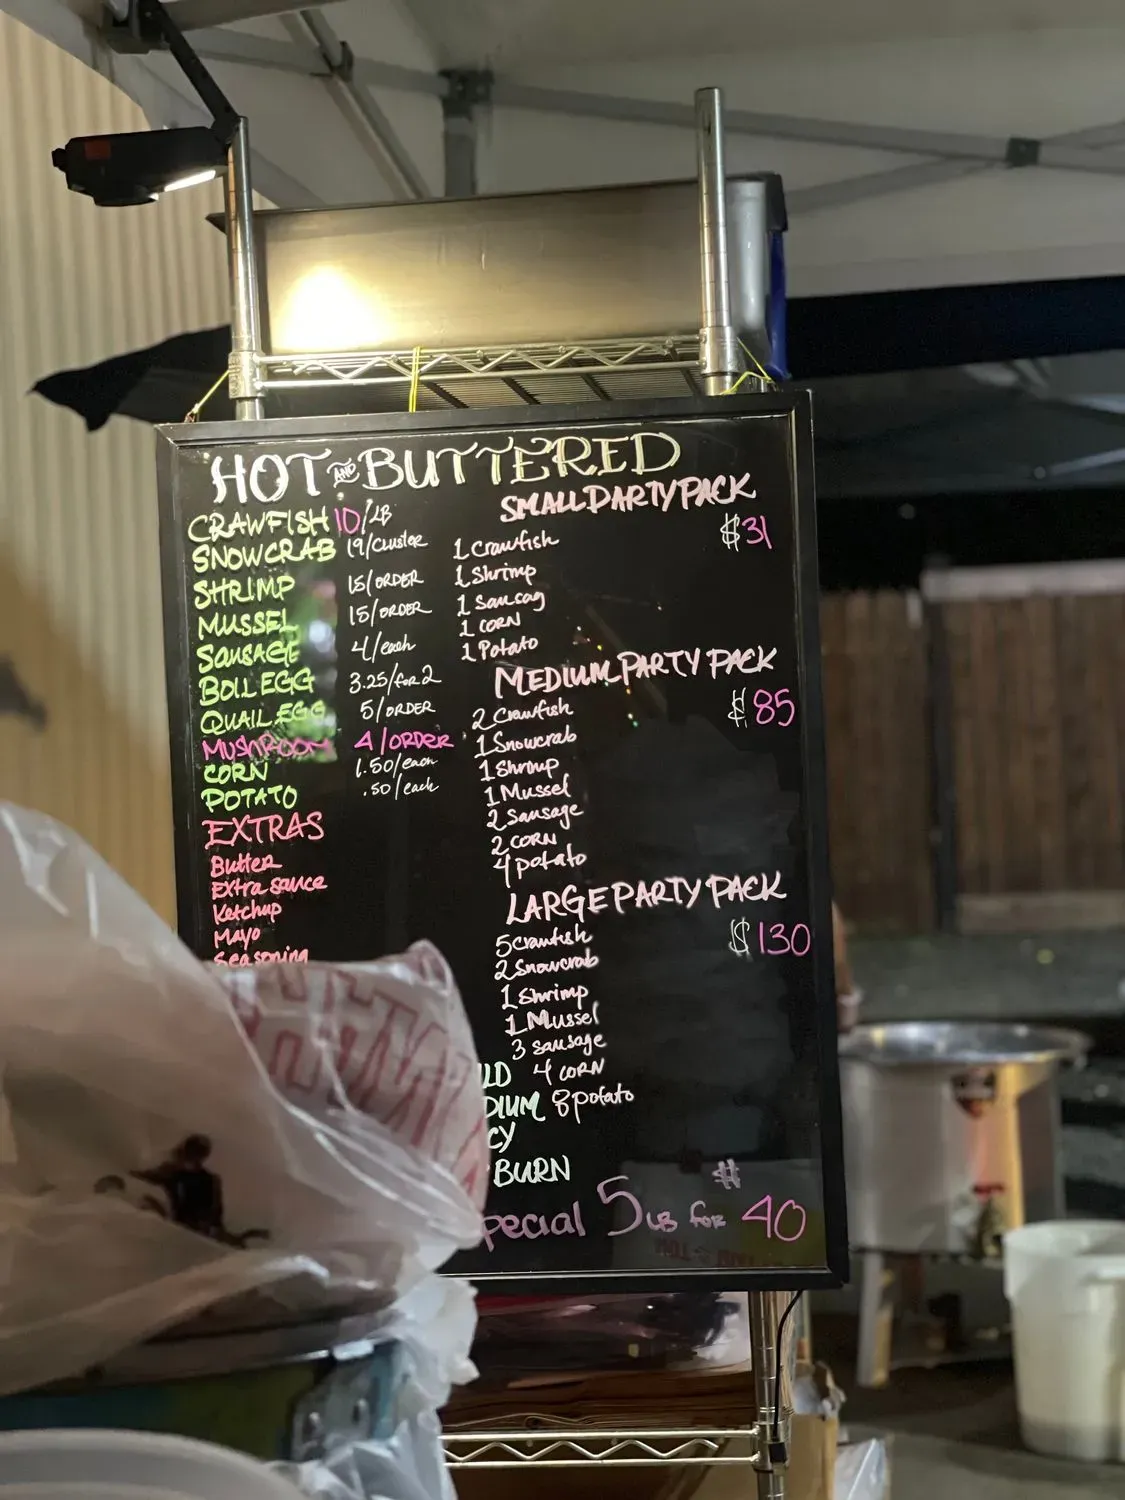 HOT AND BUTTERED
CRAWFISH 10/LB
SNOWCRAB 19/CLUSTER
SHRIMP 15/ORDER
MUSSEL 15/ORDER
SAUSAGE 4/each
BOIL EGG 3.25/for 2
QUAIL EGG 5/ORDER
MUSHROOM 4/ORDER
CORN 1.50/each
POTATO .50/each
EXTRAS
Butter
Extra sauce
Ketchup
Mayo
Seasoning
SMALL PARTY PACK
$31
1 Crawfish
1 Shrimp
1 Sausag
1 CORN
1 Potato
MEDIUM PARTY PACK
$85
2 Crawfish
1 Snowcrab
1 Shromp
1 Mussel
2 Sausage
2 CORN
4 potato
LARGE PARTY PACK
$130
5 crawfish
2 Snowcrab
1 Shrimp
1 Mussel
3 sausage
4 CORN
8 potato
LD
DIUM
CY
BURN
pecial 5 LB for $40